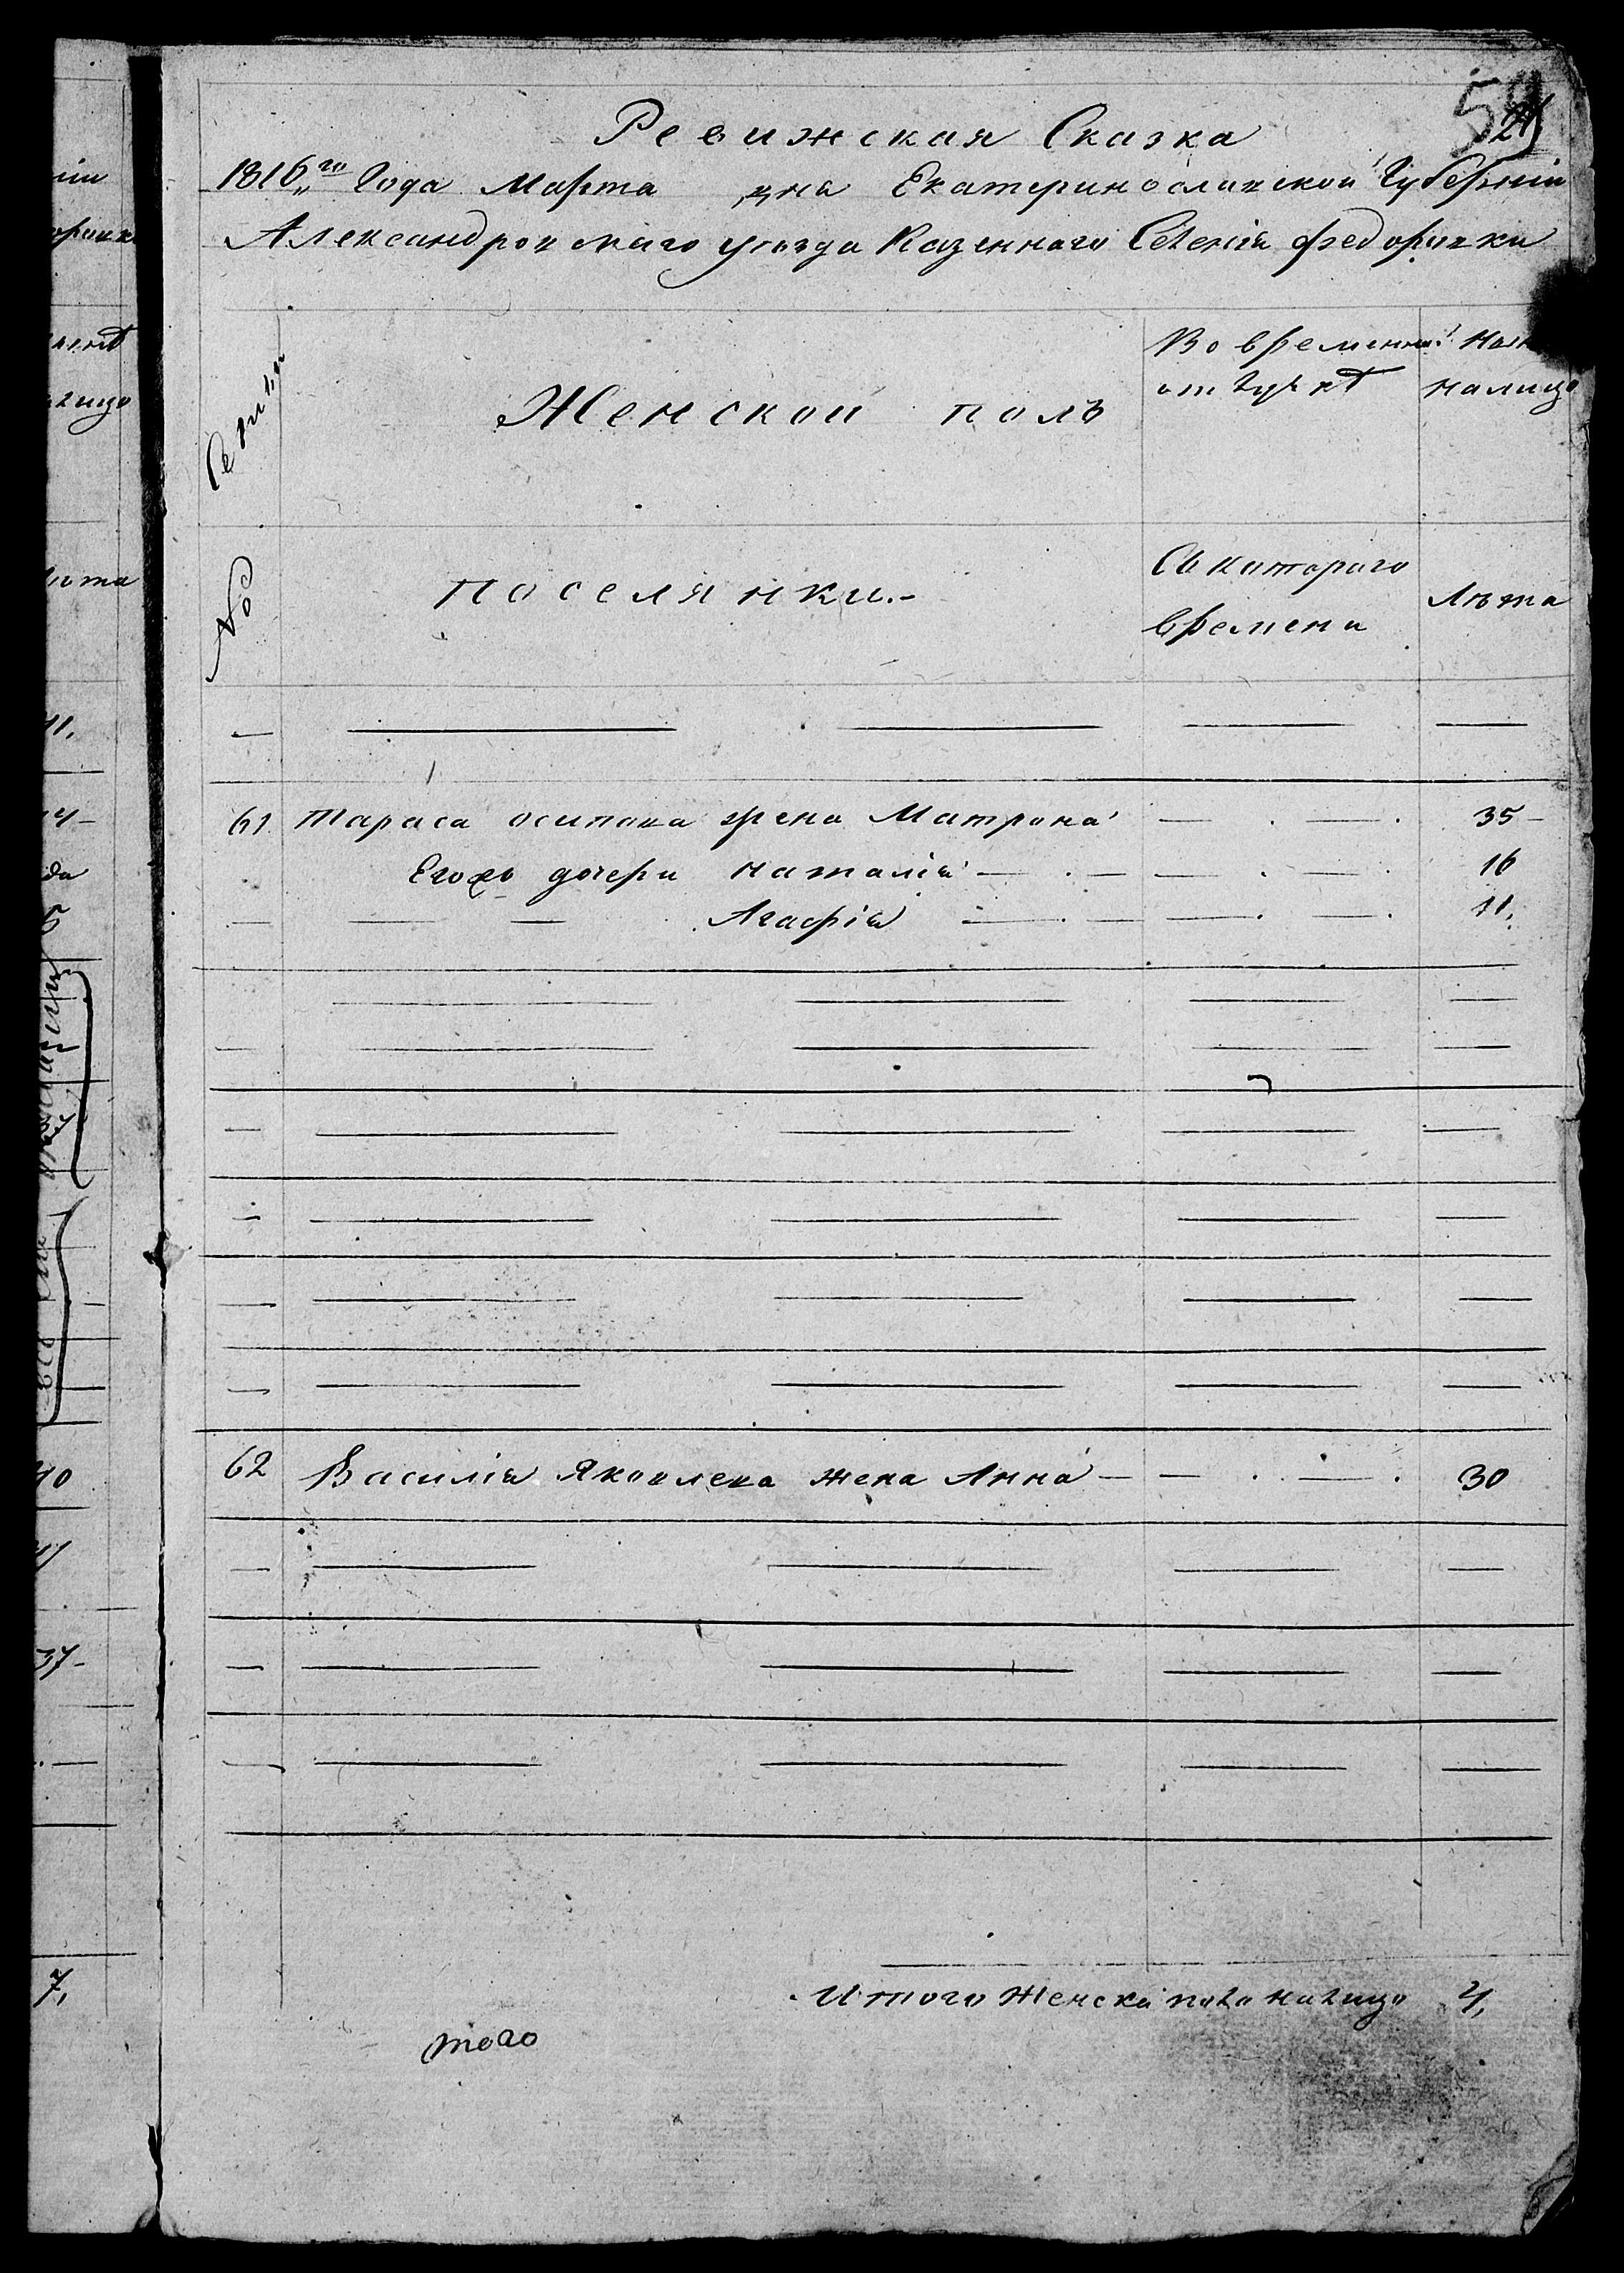 Ревижская Сказка
1816го Года Марта дня Екатеринославской Губерніи
Александровскаго уѣзда Казеннаго Селенія Федоровки
Семьи
Женской полъ
Во временной
отлучкѣ
налицо
№
поселянки.-
Съ котораго
времени
Лѣта
61 Тараса осипова жена Матрона 35
Егожъ дочери наталія 16
Агафія 11.
62 Василія Яковлева жена Анна 30
Итого Женска пола налицо 4,
того